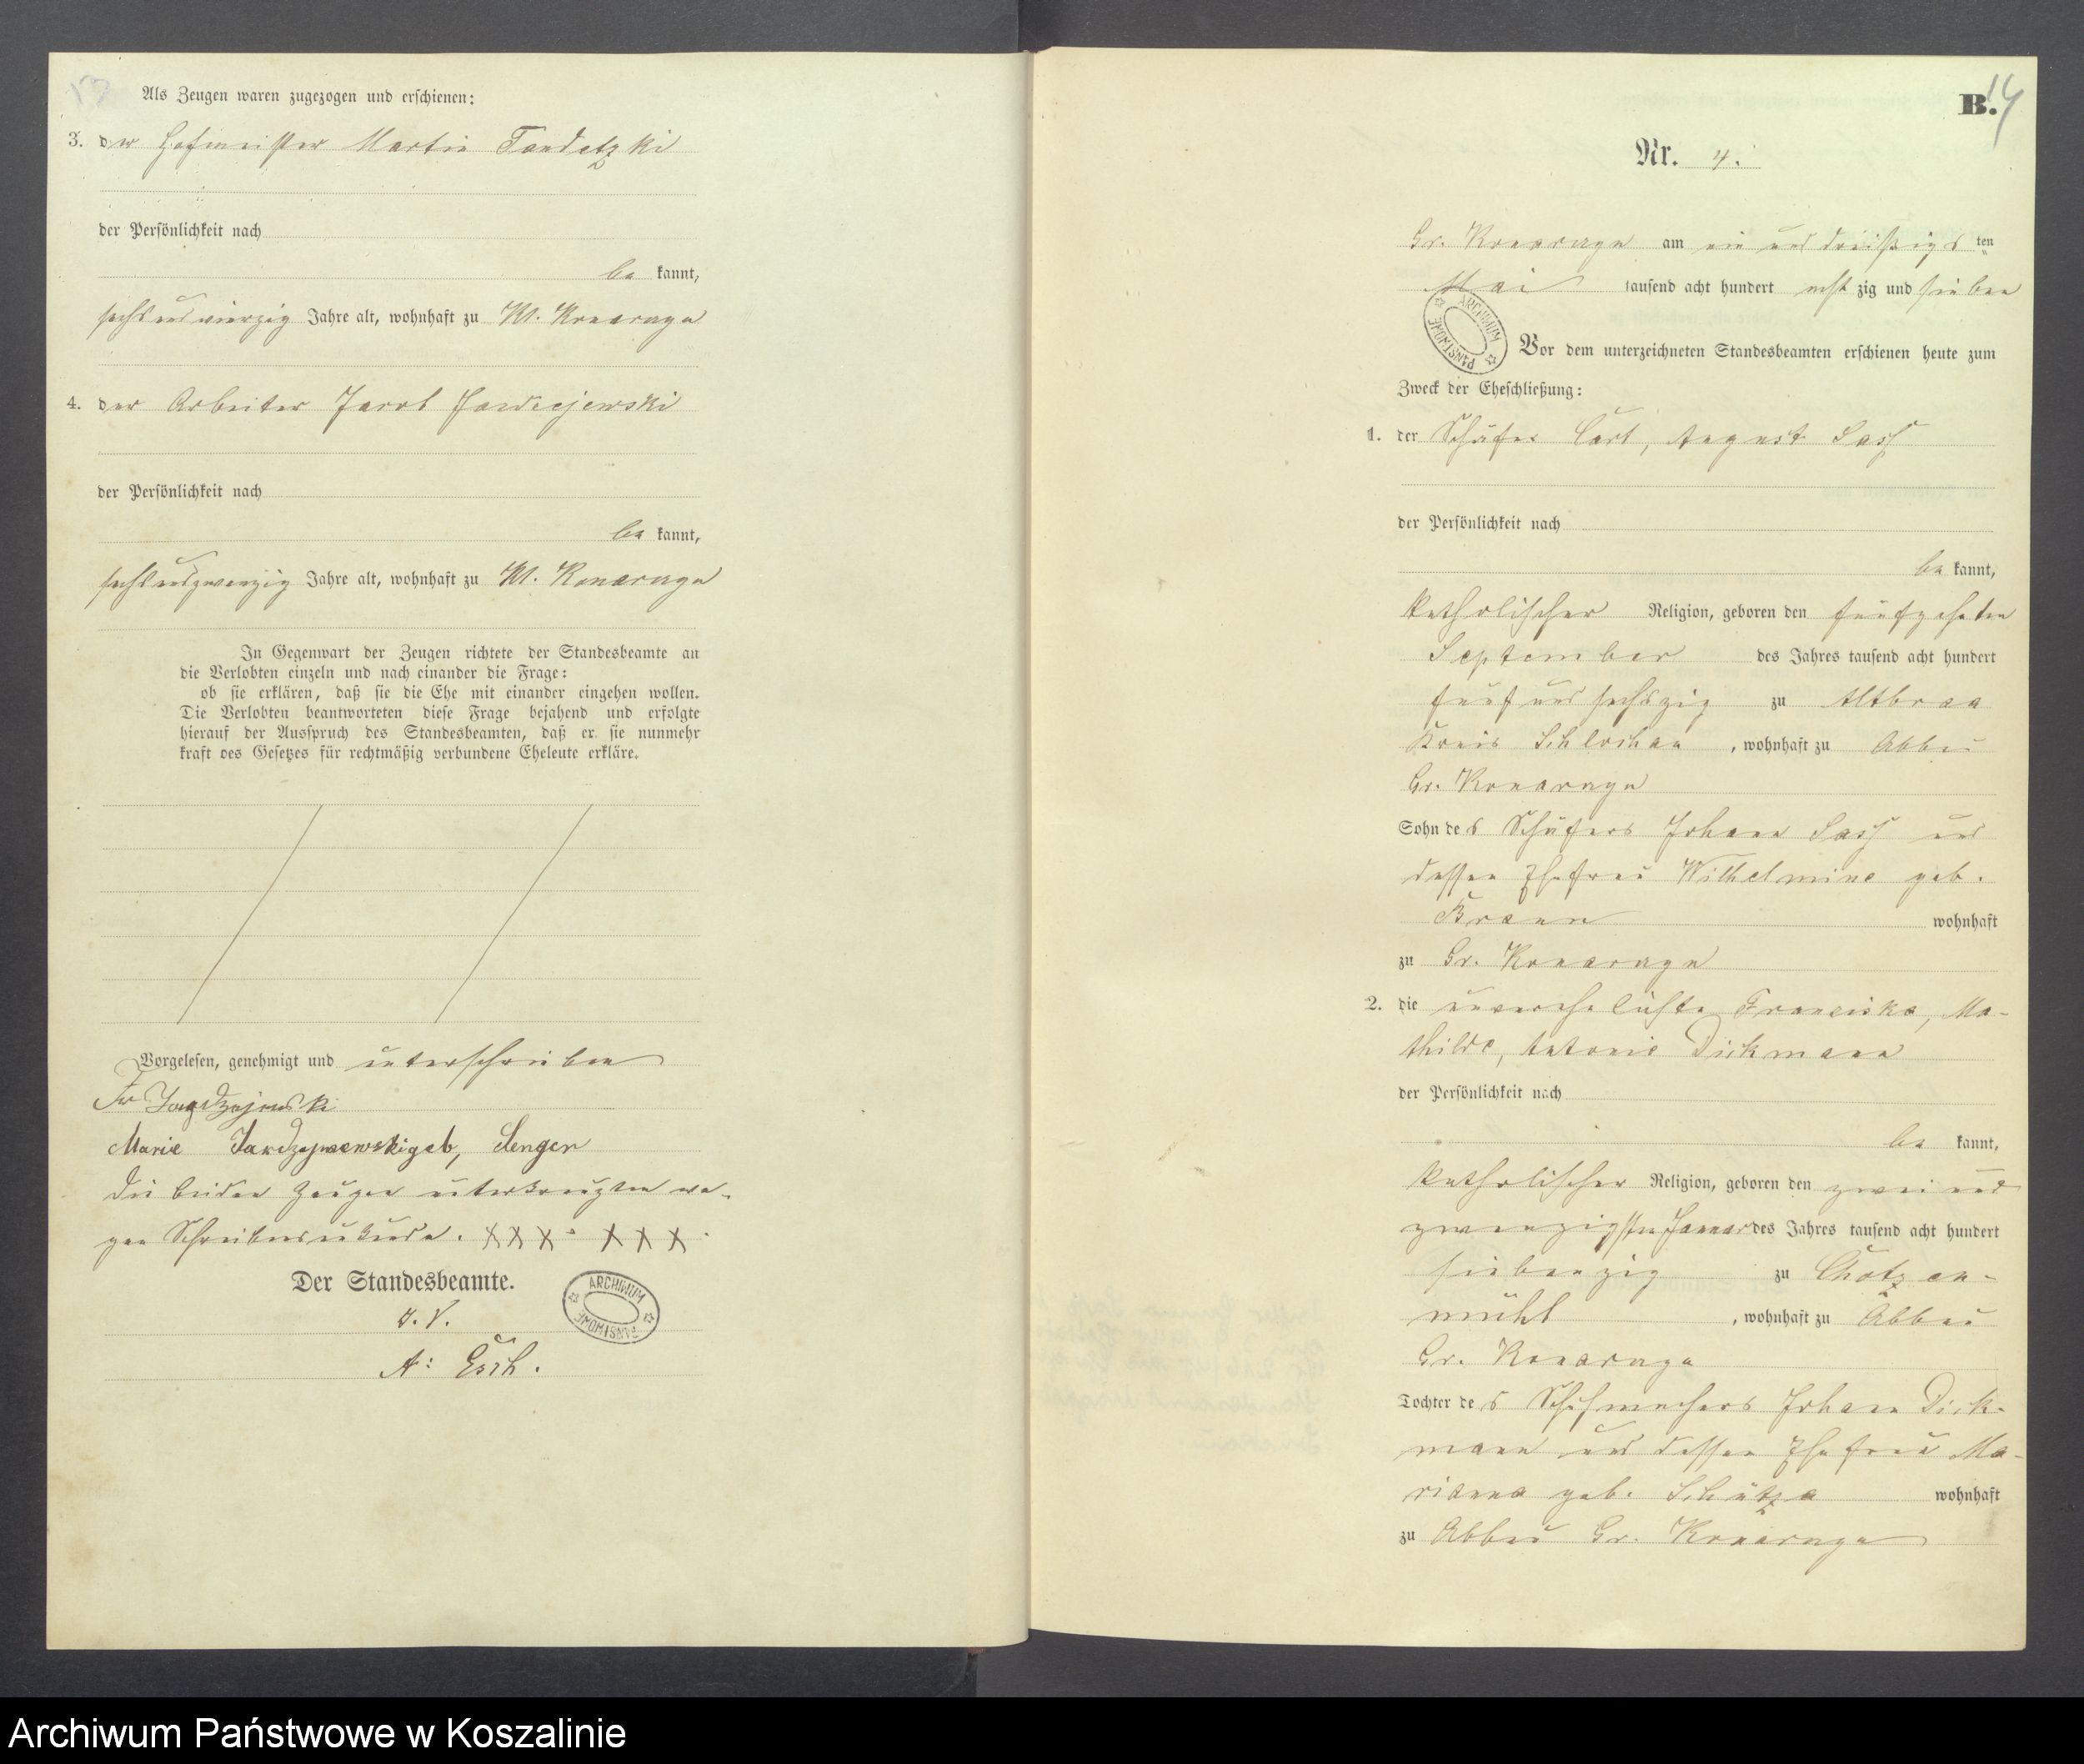 Als Zeugen waren zugezogen und erschienen:
3. der Hofmeister Martin Tandetzki
der Persönlichkeit nach
be kannt,
sechsundvierzig Jahre alt, wohnhaft zu Kl. Konarczyn
4. der Arbeiter Jacob
der Persönlichkeit nach
be kannt,
sechsundzwanzig Jahre alt, wohnhaft zu Kl. Konarczyn
In Gegenwart der Zeugen richtete der Standesbeamte an
die Verlobten einzeln und nach einander die Frage:
ob sie erklären, daß sie die Ehe mit einander eingehen wollen.
Die Verlobten beantworteten diese Frage bejahend und erfolgte
hierauf der Ausspruch des Standesbeamten, daß er sie nunmehr
kraft des Gesetzes für rechtmäßig verbundene Eheleute erkläre.
Vorgelesen, genehmigt und unterschrieben
Marie geb, Senger
Die beiden Zeugen unterkreuzten we-
gen Schreibensunkunde. XXX. XXX.
Der Standesbeamte.
J. V.
A: Esch.
ARCHIWUM PAŃSTWOWE
B. 14
Nr. 4.
Gr. Konarczyn am ein und dreißigs ten
Mai tausend acht hundert acht zig und sieben
ARCHIWUM PAŃSTWOWE
Vor dem unterzeichneten Standesbeamten erschienen heute zum
Zweck der Eheschließung:
1. der Schäfer Carl, August Sass
der Persönlichkeit nach
be kannt,
katholischer Religion, geboren den fünfzehnten
September des Jahres tausend acht hundert
fünf und sechszig zu Altbraa
Kreis Schlochau, wohnhaft zu Abbau
Gr. Konarczyn
Sohn des Schäfers Johann Sass und
dessen Ehefrau Wilhelmine geb.
Braun wohnhaft
zu Gr. Konarczyn
2. die unverehelichte Franciska, Ma-
thilde, Antonie Dickmann
der Persönlichkeit nach
be kannt,
katholischer Religion, geboren den zwei und
zwanzigsten Januar des Jahres tausend acht hundert
siebenzig zu Chotzen-
mühl, wohnhaft zu Abbau
Gr. Konarczyn
Tochter des Schuhmachers Johann Dick-
mann und dessen Ehefrau Ma-
rianna geb. Schütza wohnhaft
zu Abbau Gr. Konarczyn
Archiwum Państwowe w Koszalinie